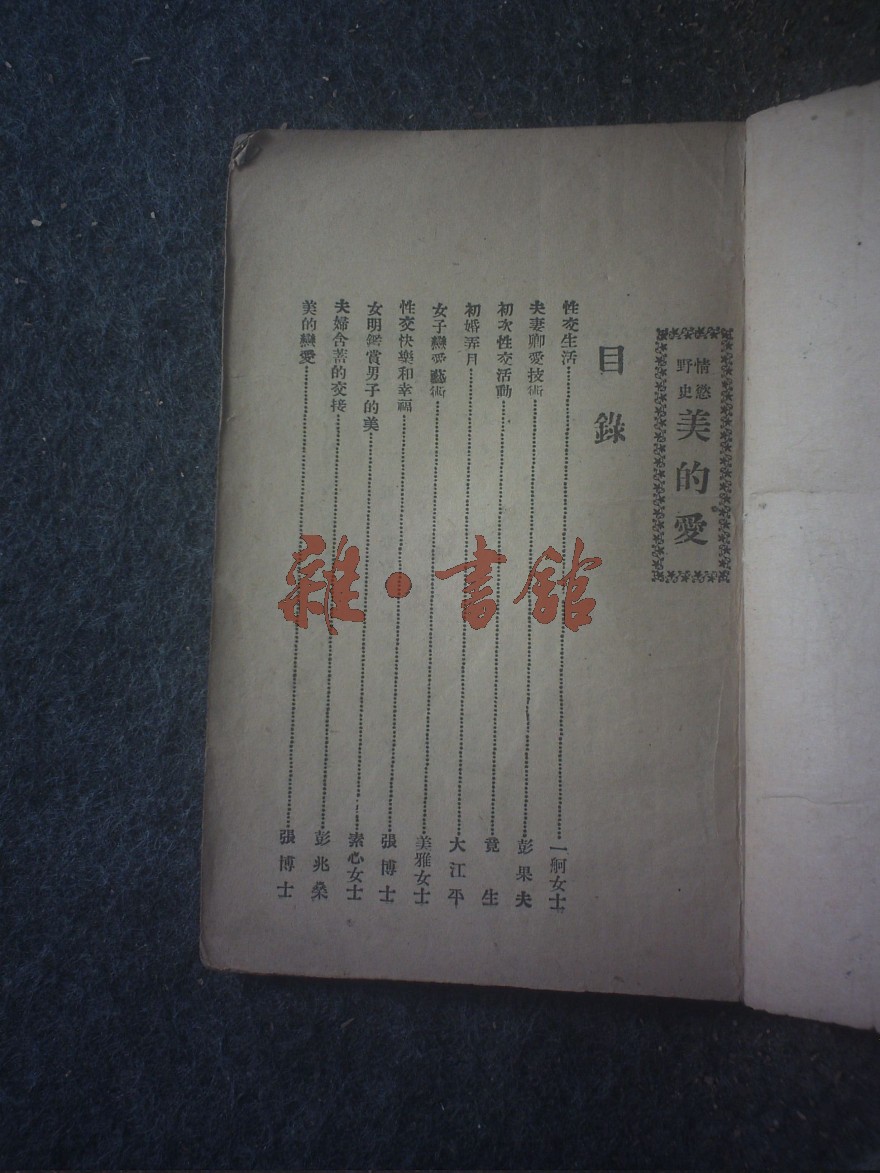 情慾
野史
美的愛
目錄
性交生活……一舸女士
夫妻聊愛技術……彭果夫
初次性交活動……竟生
初婚弄月……大江平
女子戀愛藝術……美雅女士
性交快樂和幸福……張博士
女明鑑賞男子的美……素心女士
夫婦含蓄的交接……彭兆燊
美的戀愛……張博士
雜·書館